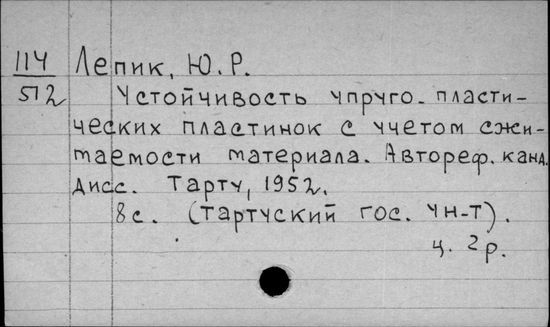 114 Лепик, Ю.Р.
512 Устойчивость упруго-пласти-
ческих пластинок с учетом сжи-
маемости материала. Автореф. канд.
дисс. Тарту, 1952.
8с. (Тартуский гос. ун-т).
ц. 2р.